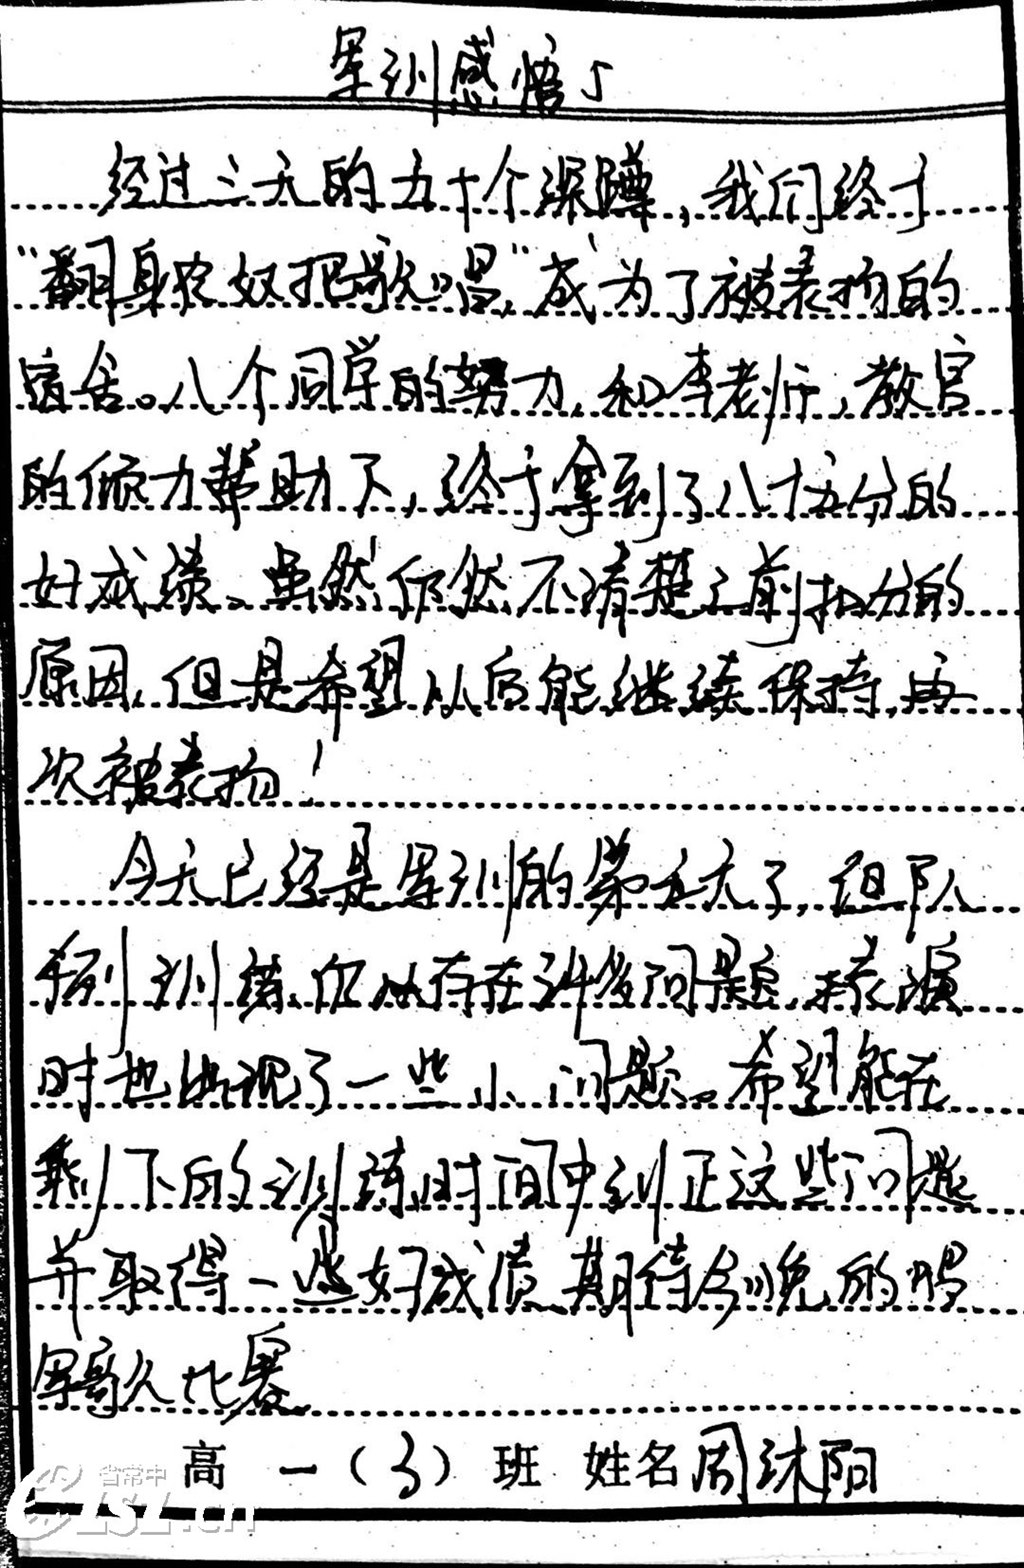 军训感悟5
经过三天的五十个深蹲,我们终于
“翻身农奴把歌唱”,成为了被表扬的
宿舍。八个同学的努力,和李老师,教官
的倾力帮助下,终于拿到了八十五分的
好成绩。虽然仍然不清楚之前扣分的
原因,但是希望以后能继续保持,再
次被表扬!
今天已经是军训的第五天了,但队
列训练仍从存在许多问题,表演
时也出现了一些小问题。希望能在
剩下的训练时间中纠正这些问题
并取得一些好成绩,期待今晚的唱
军歌比赛
高一(3)班 姓名周沐阳
省常中
CLSZ.cn